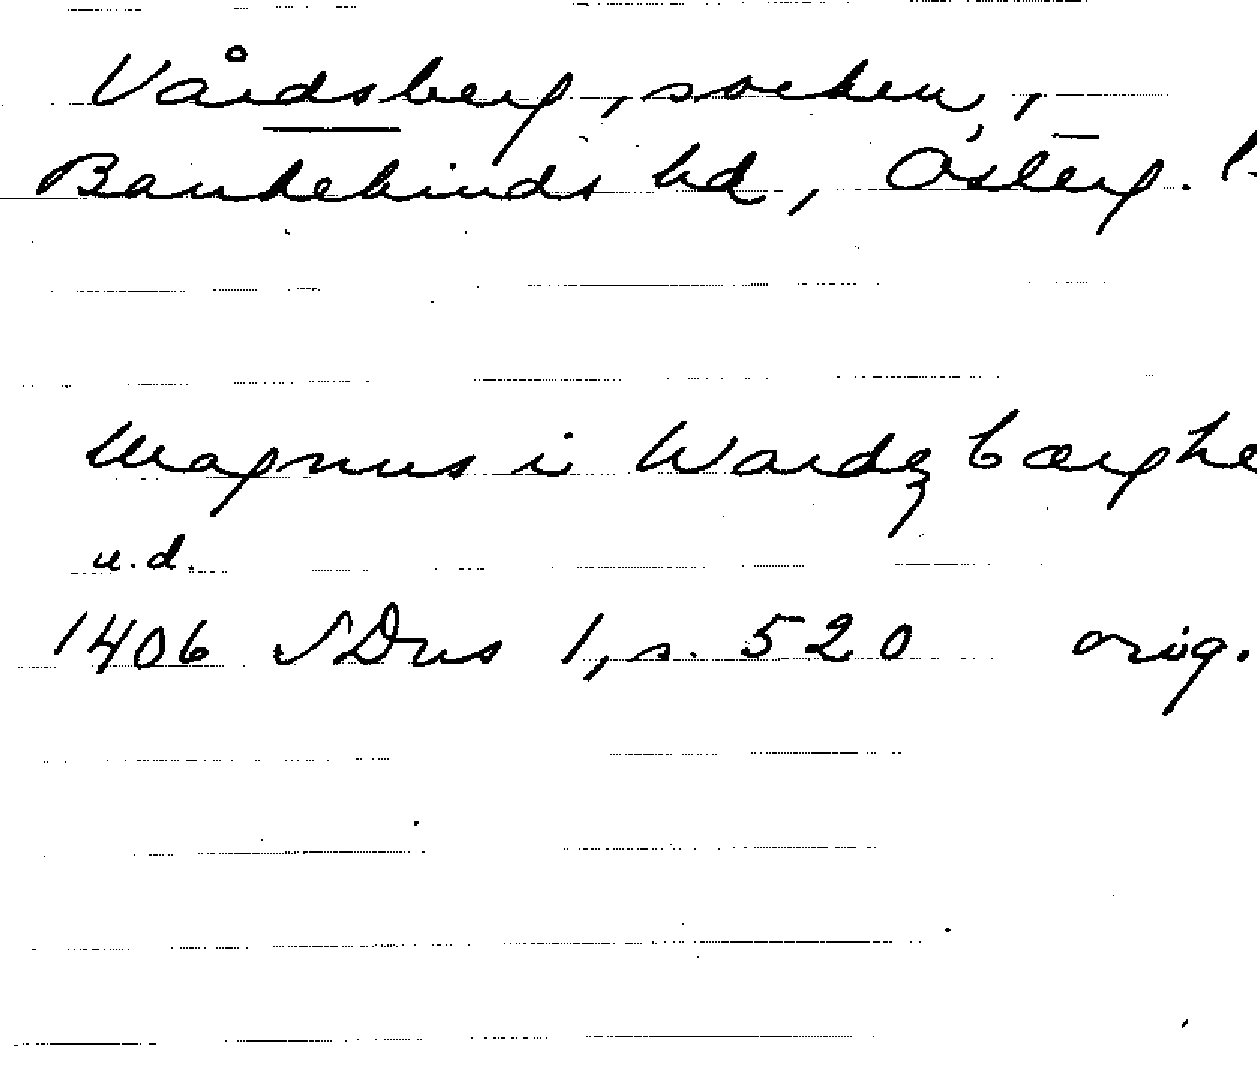 Vårdsberg, socken,
Bankekinds hd, Österg.
Magnus i Wardzbærghe
u.d.
1406 SDns 1, s. 520 orig.